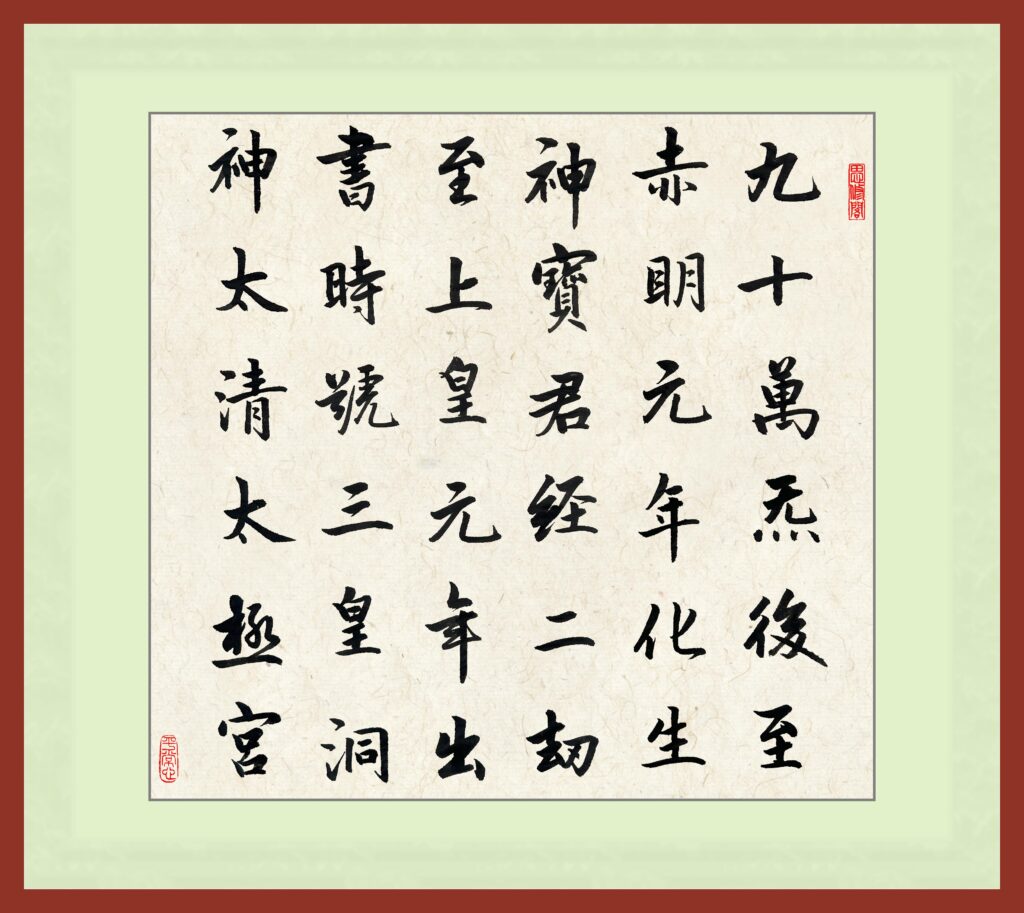 九十萬炁後至
赤明元年化生
神寶君经二劫
至上皇元年出
書時號三皇洞
神太清太極宮